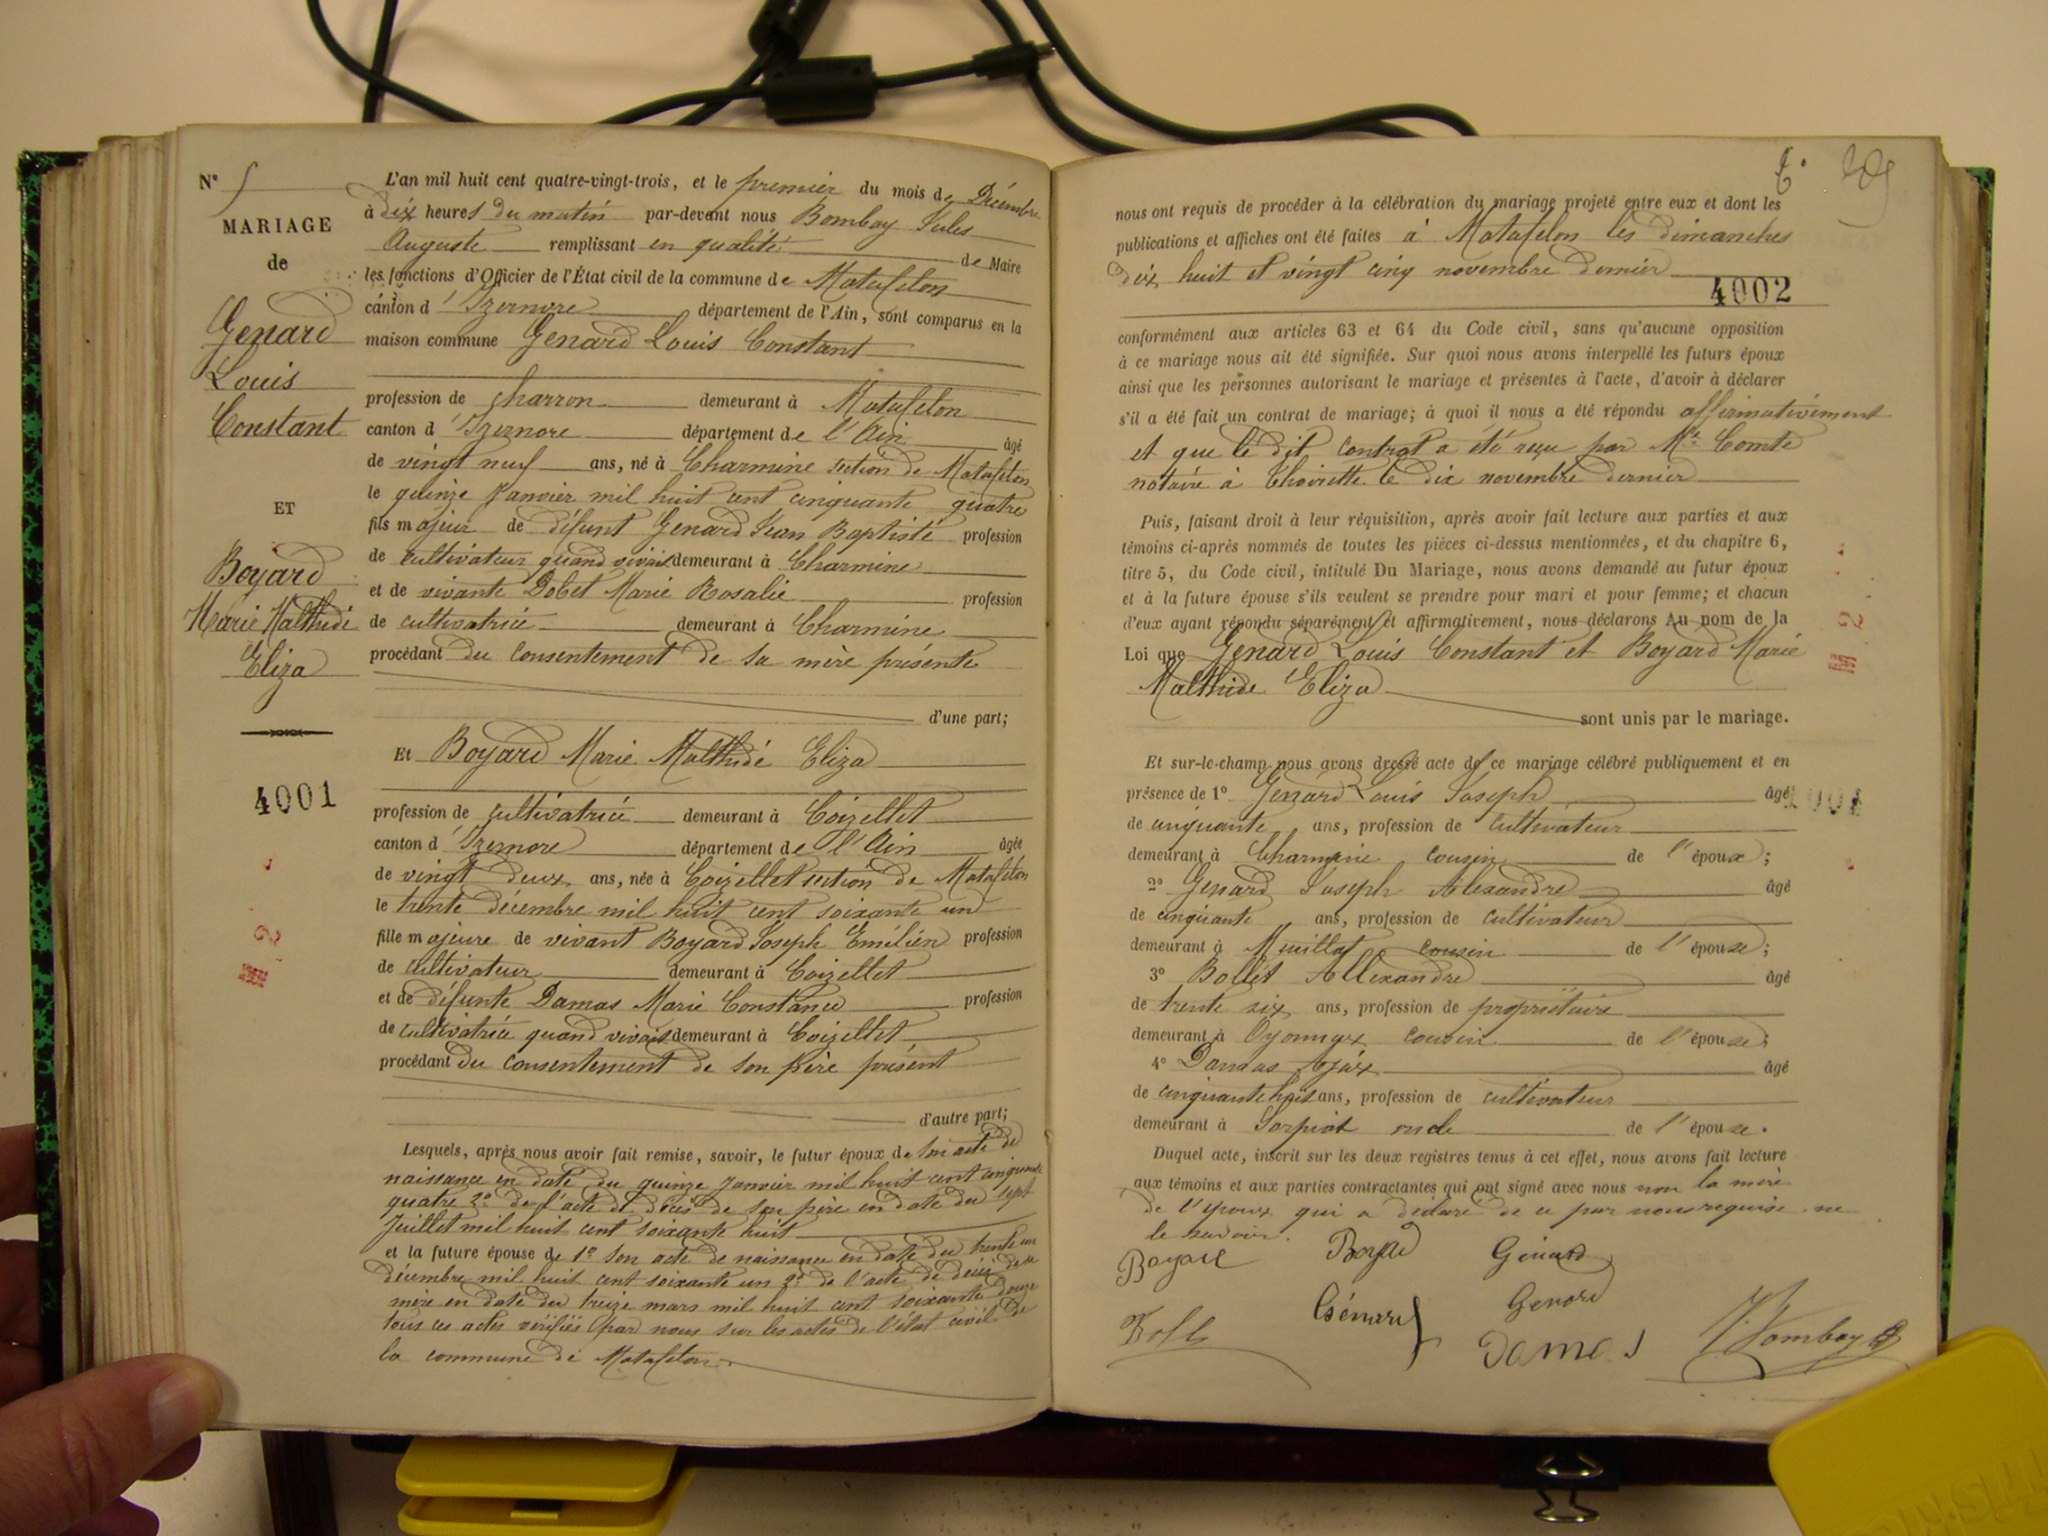 N° 5
MARIAGE
de
Genard
Louis
Constant
ET
Boyard
Marie Malthide
Eliza
4001
L'an mil huit cent quatre-vingt-trois, et le premier du mois de Décembre
à dix heures du matin par-devant nous Bombay Jules
Auguste remplissant en qualité de Maire
les fonctions d'Officier de l'État civil de la commune de Matafelon
canton d'Izernore département de l'Ain, sont comparus en la
maison commune Genard Louis Constant
profession de charron demeurant à Matafelon
canton d'Izernore département de l'Ain âgé
de vingt neuf ans, né à Charmine section de Matafelon
le quinze Janvier mil huit cent cinquante quatre
fils majeur de défunt Genard Jean Baptiste profession
de cultivateur quand vivait demeurant à Charmine
et de vivante Dobet Marie Rosalie profession
de cultivatrice demeurant à Charmine
procédant du consentement de sa mère présente
d'une part;
Et Boyard Marie Malthide Eliza
profession de cultivatrice demeurant à Coizellet
canton d'Izernore département de l'Ain âgée
de vingt deux ans, née à Coizellet section de Matafelon
le trente decembre mil huit cent soixante un
fille majeure de vivant Boyard Joseph Emélien profession
de cultivateur demeurant à Coizellet
et de défunte Damas Marie Constance profession
de cultivatrice quand vivait demeurant à Coizellet
procédant du consentement de son père présent
d'autre part;
Lesquels, après nous avoir fait remise, savoir, le futur époux de son acte de
naissance en date du quinze Janvier mil huit cent cinquante
quatre 2° de l'acte de décès de son père en date du sept
Juillet mil huit cent soixante huit
et la future épouse de 1° son acte de naissance en date du trente un
décembre mil huit cent soixante un 2° de l'acte de décès de sa
mère en date du treize mars mil huit cent soixante douze
tous ces actes vérifiés par nous sur les actes de l'état civil de
la commune de Matafelon
nous ont requis de procéder à la célébration du mariage projeté entre eux et dont les
publications et affiches ont été faites à Matafelon les dimanches
dix huit et vingt cinq novembre dernier
4002
conformément aux articles 63 et 64 du Code civil, sans qu'aucune opposition
à ce mariage nous ait été signifiée. Sur quoi nous avons interpellé les futurs époux
ainsi que les personnes autorisant le mariage et présentes à l'acte, d'avoir à déclarer
s'il a été fait un contrat de mariage; à quoi il nous a été répondu affirmativement
et que le dit contrat a été reçu par Me Comte
notaire à Thoirette le dix novembre dernier
Puis, faisant droit à leur réquisition, après avoir fait lecture aux parties et aux
témoins ci-après nommés de toutes les pièces ci-dessus mentionnées, et du chapitre 6,
titre 5, du Code civil, intitulé Du Mariage, nous avons demandé au futur époux
et à la future épouse s'ils veulent se prendre pour mari et pour femme; et chacun
d'eux ayant répondu séparément et affirmativement, nous déclarons Au nom de la
Loi que Genard Louis Constant et Boyard Marie
Malthide Eliza
sont unis par le mariage.
Et sur-le-champ nous avons dressé acte de ce mariage célébré publiquement et en
présence de 1° Genard Louis Joseph âgé
de cinquante ans, profession de cultivateur
demeurant à Charmine cousin de l'époux;
2° Genard Joseph Alexandre âgé
de cinquante ans, profession de cultivateur
demeurant à Meuillat cousin de l'épouse;
3° Bollet Allexandre âgé
de trente six ans, profession de propriétaire
demeurant à Oyonnax cousin de l'épouse;
4° Damas Ajax âgé
de cinquante huit ans, profession de cultivateur
demeurant à Sorpiat oncle de l'épouse.
Duquel acte, inscrit sur les deux registres tenus à cet effet, nous avons fait lecture
aux témoins et aux parties contractantes qui ont signé avec nous non la mère
de l'époux qui a déclaré de ce par nous requise ne
le savoir.
Boyard Boyard Génard
Génard Genard
Damas J. Bombay